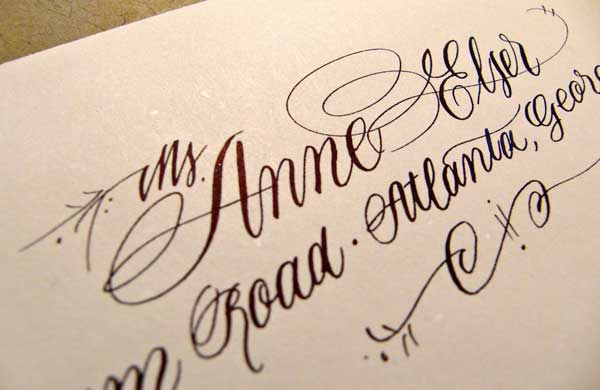 Ms. Anne Elser
Road · Atlanta, Geor